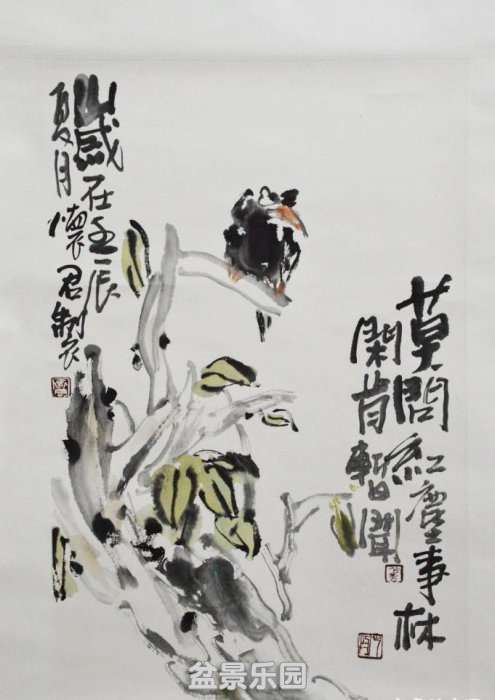 莫問紅塵事林
閑肯暫聞
歲在壬辰
夏月懷君製
盆景乐园